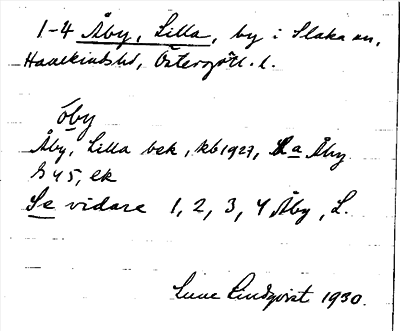 1-4 Åby, Lilla, by i Slaka sn,
Hanekinds hd, Östergötl. l.
óby
Åby, Lilla bek, kb 1927, La Åby
g 45, ek
Se vidare 1, 2, 3, 4 Åby, L.
Sune Lindqvist 1930.